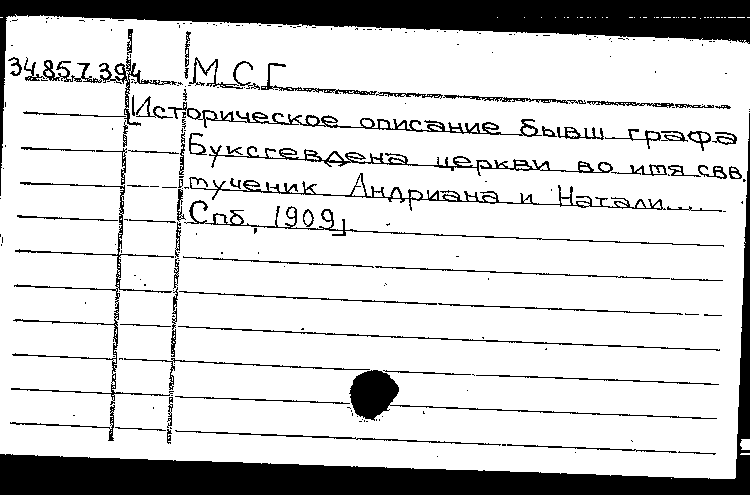 34.85.7.394 М.С.Г
[Историческое описание бывш графа
Буксгевдена церкви во имя свв.
мученик Андриана и Натали...
Спб, 1909]